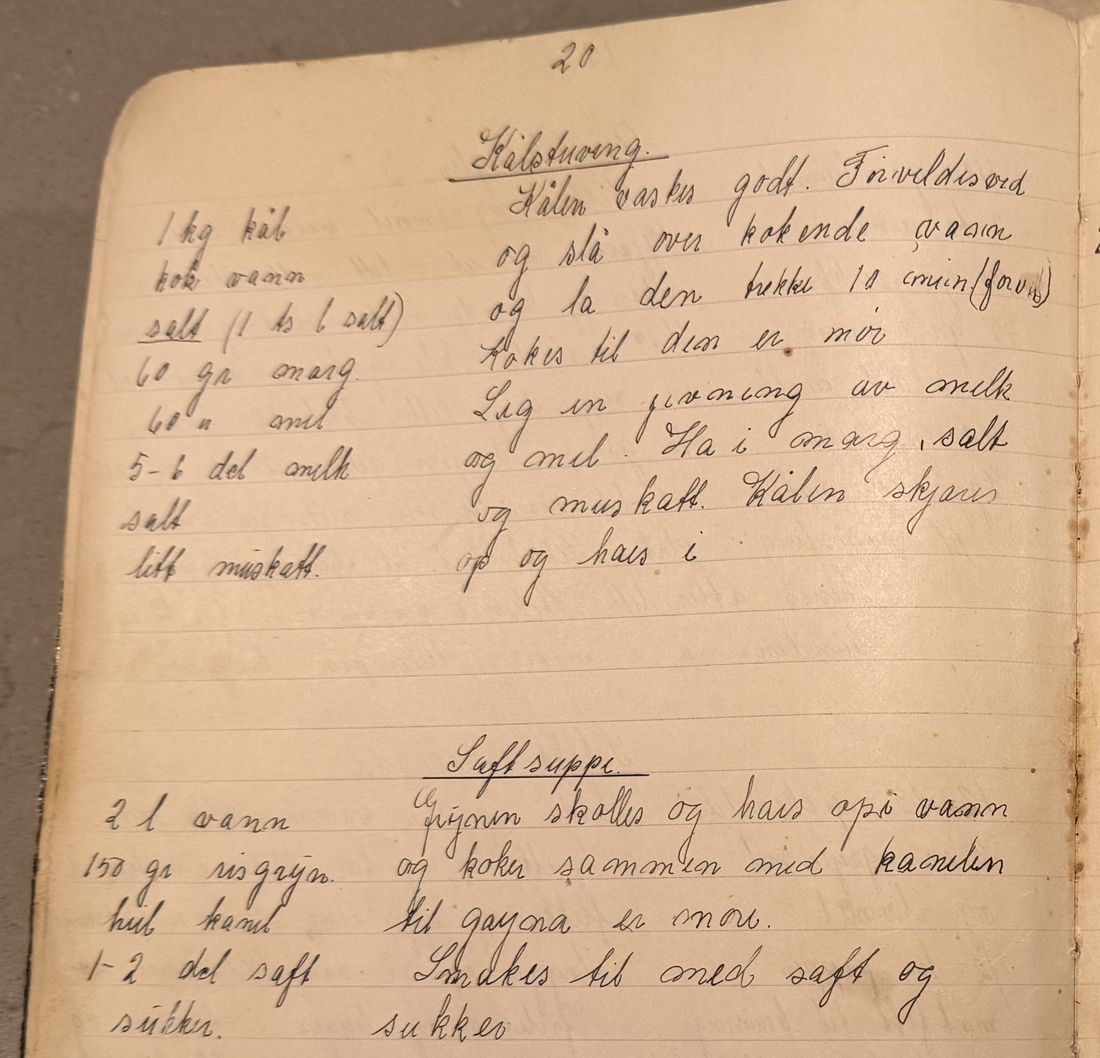 20
Kålstuving.
1 kg kål
kok vann
salt (1 ts l salt)
60 gr marg.
60 " mel
5-6 del melk
salt
litt muskatt.
Kålen vaskes godt. Forveldes ved
og slå over kokende vann
og la den trekke 10 min
kokes til den er mør
Lag en jevning av melk
og mel. Ha i marg, salt
og muskatt. Kålen skjæres
op og haes i
Saftsuppe.
2 l vann
150 gr risgryn.
hel kanel
1-2 del saft
sukker.
Grynen skolles og haes opi vann
og koker sammen med kanelen
til gryna er møre.
Smakes til med saft og
sukker